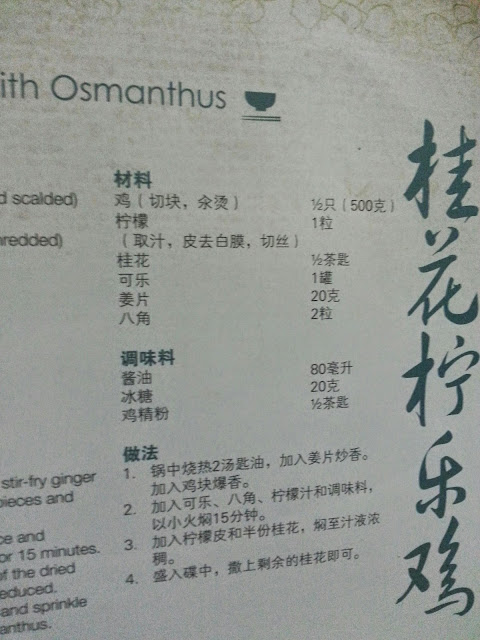 ith Osmanthus
桂花柠乐鸡
d scalded)
hredded)
stir-fry ginger
pieces and
ce and
or 15 minutes.
of the dried
educed.
and sprinkle
anthus.
材料
鸡（切块，汆烫） ½只（500克）
柠檬 1粒
（取汁，皮去白膜，切丝）
桂花 ½茶匙
可乐 1罐
姜片 20克
八角 2粒
调味料
酱油 80毫升
冰糖 20克
鸡精粉 ½茶匙
做法
1. 锅中烧热2汤匙油，加入姜片炒香。
加入鸡块爆香。
2. 加入可乐、八角、柠檬汁和调味料，
以小火焖15分钟。
3. 加入柠檬皮和半份桂花，焖至汁液浓
稠。
4. 盛入碟中，撒上剩余的桂花即可。